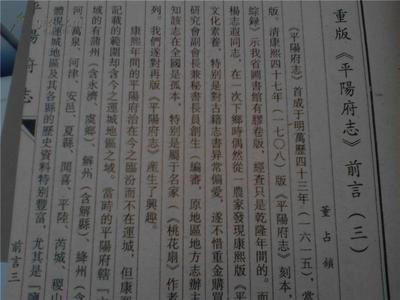 重版《平陽府志》前言(三)
董占領
《平陽府志》首成于明萬歷四十三年(一六一五),當
版。清康熙四十七年(一七〇八)版《平陽府志》刻本
綜録)示我省圖書館有膠卷版,經查只是乾隆年間的。而
楊志遐同志,在一次下鄉時偶然從一農家發現康熙版《平
文化素養,特别是對古籍志書异常偏愛,遂不惜重金購買
研究會副會長兼秘書長員創生(編審,原地區地方志辦主
知該志在全國是孤本,特别是屬于名家、《桃花扇》作者
列。我們遂對再版《平陽府志》產生了興趣。
康熙年間的平陽府治在今之臨汾而不在運城,但康熙
記載的範圍却含今之運城地區之域。當時的平陽府轄
域的有蒲州(含永濟、虞鄉)、解州(含解縣)、絳州(含
河、萬泉、河津、安邑、夏縣、聞喜、平陸、芮城、稷山
體現運城地區及其各縣的歷史資料特别豐富,尤其是「鹽
平陽府志
前言三